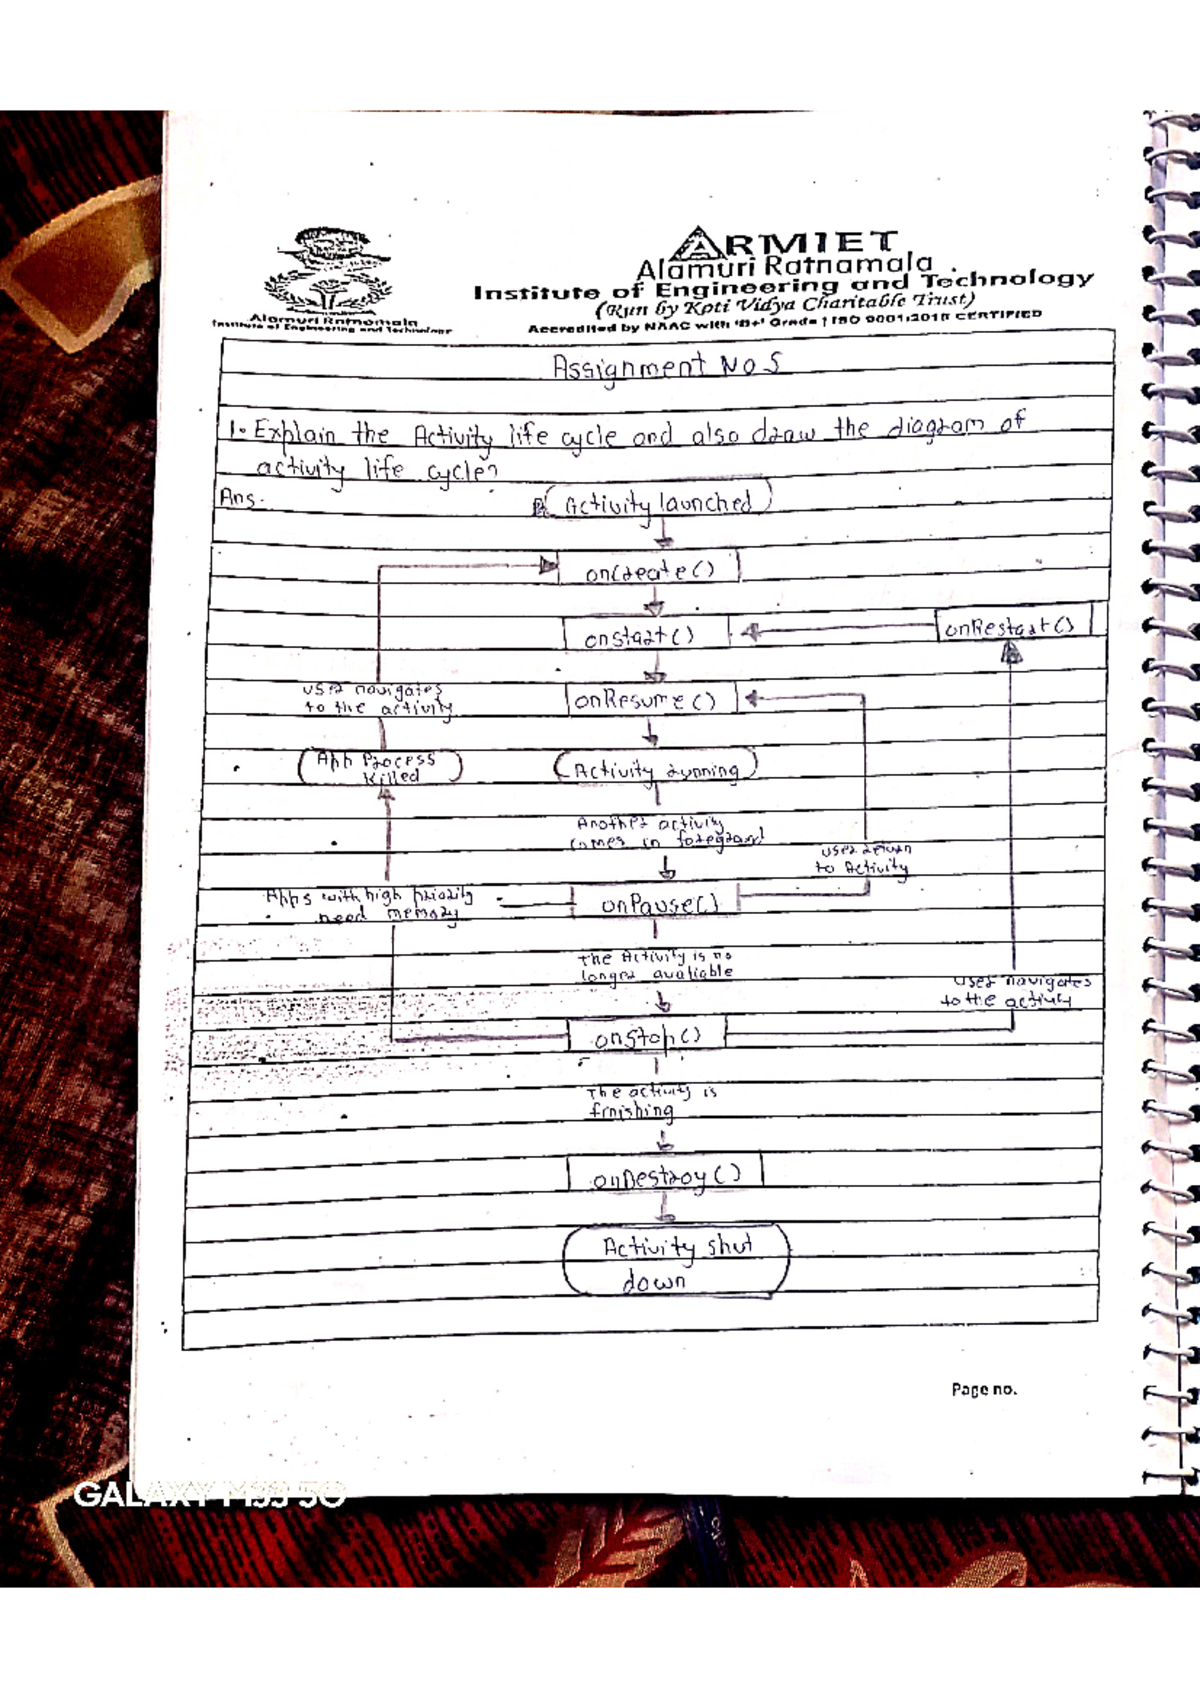 ARMIET
Alamuri Ratnamala
Institute of Engineering and Technology
(Run by Koti Vidya Charitable Trust)
Accredited by NAAC with 'B+' Grade | ISO 9001:2015 CERTIFIED
Alamuri Ratnamala
Institute of Engineering and Technology
Assignment No 5
1. Explain the Activity life cycle and also draw the diagram of
activity life cycle?
Ans.
Activity launched
onCreate()
onstart()
onRestart()
user navigates
to the activity
onResume()
App Process
killed
Activity running
Another activity
comes in
user return
to Activity
Apps with high priority
need memory
onPause()
The Activity is no
longer avaliable
user navigates
to the activity
onStop()
The activity is
finishing
onDestroy()
Activity shut
down
Page no.
GALAXY M33 5G